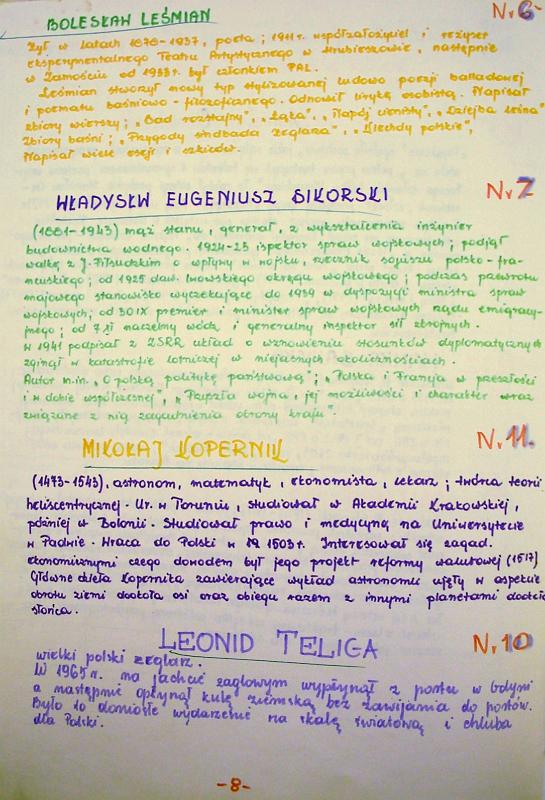 BOLESŁAW LEŚMIAN
Nr 6
Żył w latach 1878-1937, poeta; 1911r. współzałożyciel i reżyser
eksperymentalnego Teatru Artystycznego w Hrubieszowie, następnie
w Zamościu od 1933r. był członkiem PAL.
Leśmian stworzył nowy typ stylizowanej ludowo poezji balladowej
i poematu baśniowo-filozoficznego. Odnowił lirykę osobistą. Napisał
zbiory wierszy; „Sad rozstajny", „Łąka", „Napój cienisty", „Dziejba leśna"
Zbiory baśni; „Przygody Sindbada Żeglarza", „Klechdy polskie",
Napisał wiele eseji i szkiców.
WŁADYSŁW EUGENIUSZ SIKORSKI
Nr 7
(1881-1943) mąż stanu, generał, z wykształcenia inżynier
budownictwa wodnego. 1924-25 ispektor spraw wojskowych; podjął
walkę z J. Piłsudskim o wpływy w wojsku, rzecznik sojuszu polsko-fra-
ncuskiego; od 1925 daw. lwowskiego okręgu wojskowego; podczas przewrotu
majowego stanowisko wyczekujące do 1939 w dyspozycji ministra spraw
wojskowych; od 30 IX premier i minister spraw wojskowych rządu emigracyj-
nego; od 7 XI naczelny wódz i generalny inspektor sił zbrojnych.
W 1941 podpisał z ZSRR układ o wznowieniu stosunków dyplomatycznych
zginął w katastrofie lotniczej w niejasnych okolicznościach.
Autor m.in. „O polską politykę państwową"; „Polska i Francja w przeszłości
i w dobie współczesnej", „Przyszła wojna, jej możliwości i charakter oraz
związane z nią zagadnienia obrony kraju".
MIKOŁAJ KOPERNIK
Nr 11.
(1473-1543), astronom, matematyk, ekonomista, lekarz; twórca teorii
heliocentrycznej. Ur. w Toruniu, studiował w Akademii Krakowskiej,
później w Bolonii. Studiował prawo i medycynę na Uniwersytecie
w Padwie. Wraca do Polski w 1503r. Interesował się zagad.
ekonomicznymi czego dowodem był jego projekt reformy walutowej (1517)
Główne dzieła Kopernika zawierające wykład astronomii ujęty w aspekcie
obrotu ziemi dookoła osi oraz obiegu razem z innymi planetami dookoła
słońca.
LEONID TELIGA
Nr 10
wielki polski żeglarz.
W 1967r. na jachcie żaglowym wypłynął z portu w Gdyni
a następnie opłynął kulę ziemską bez zawijania do portów.
Było to doniosłe wydarzenie na skalę światową i chluba
dla Polski.
-8-